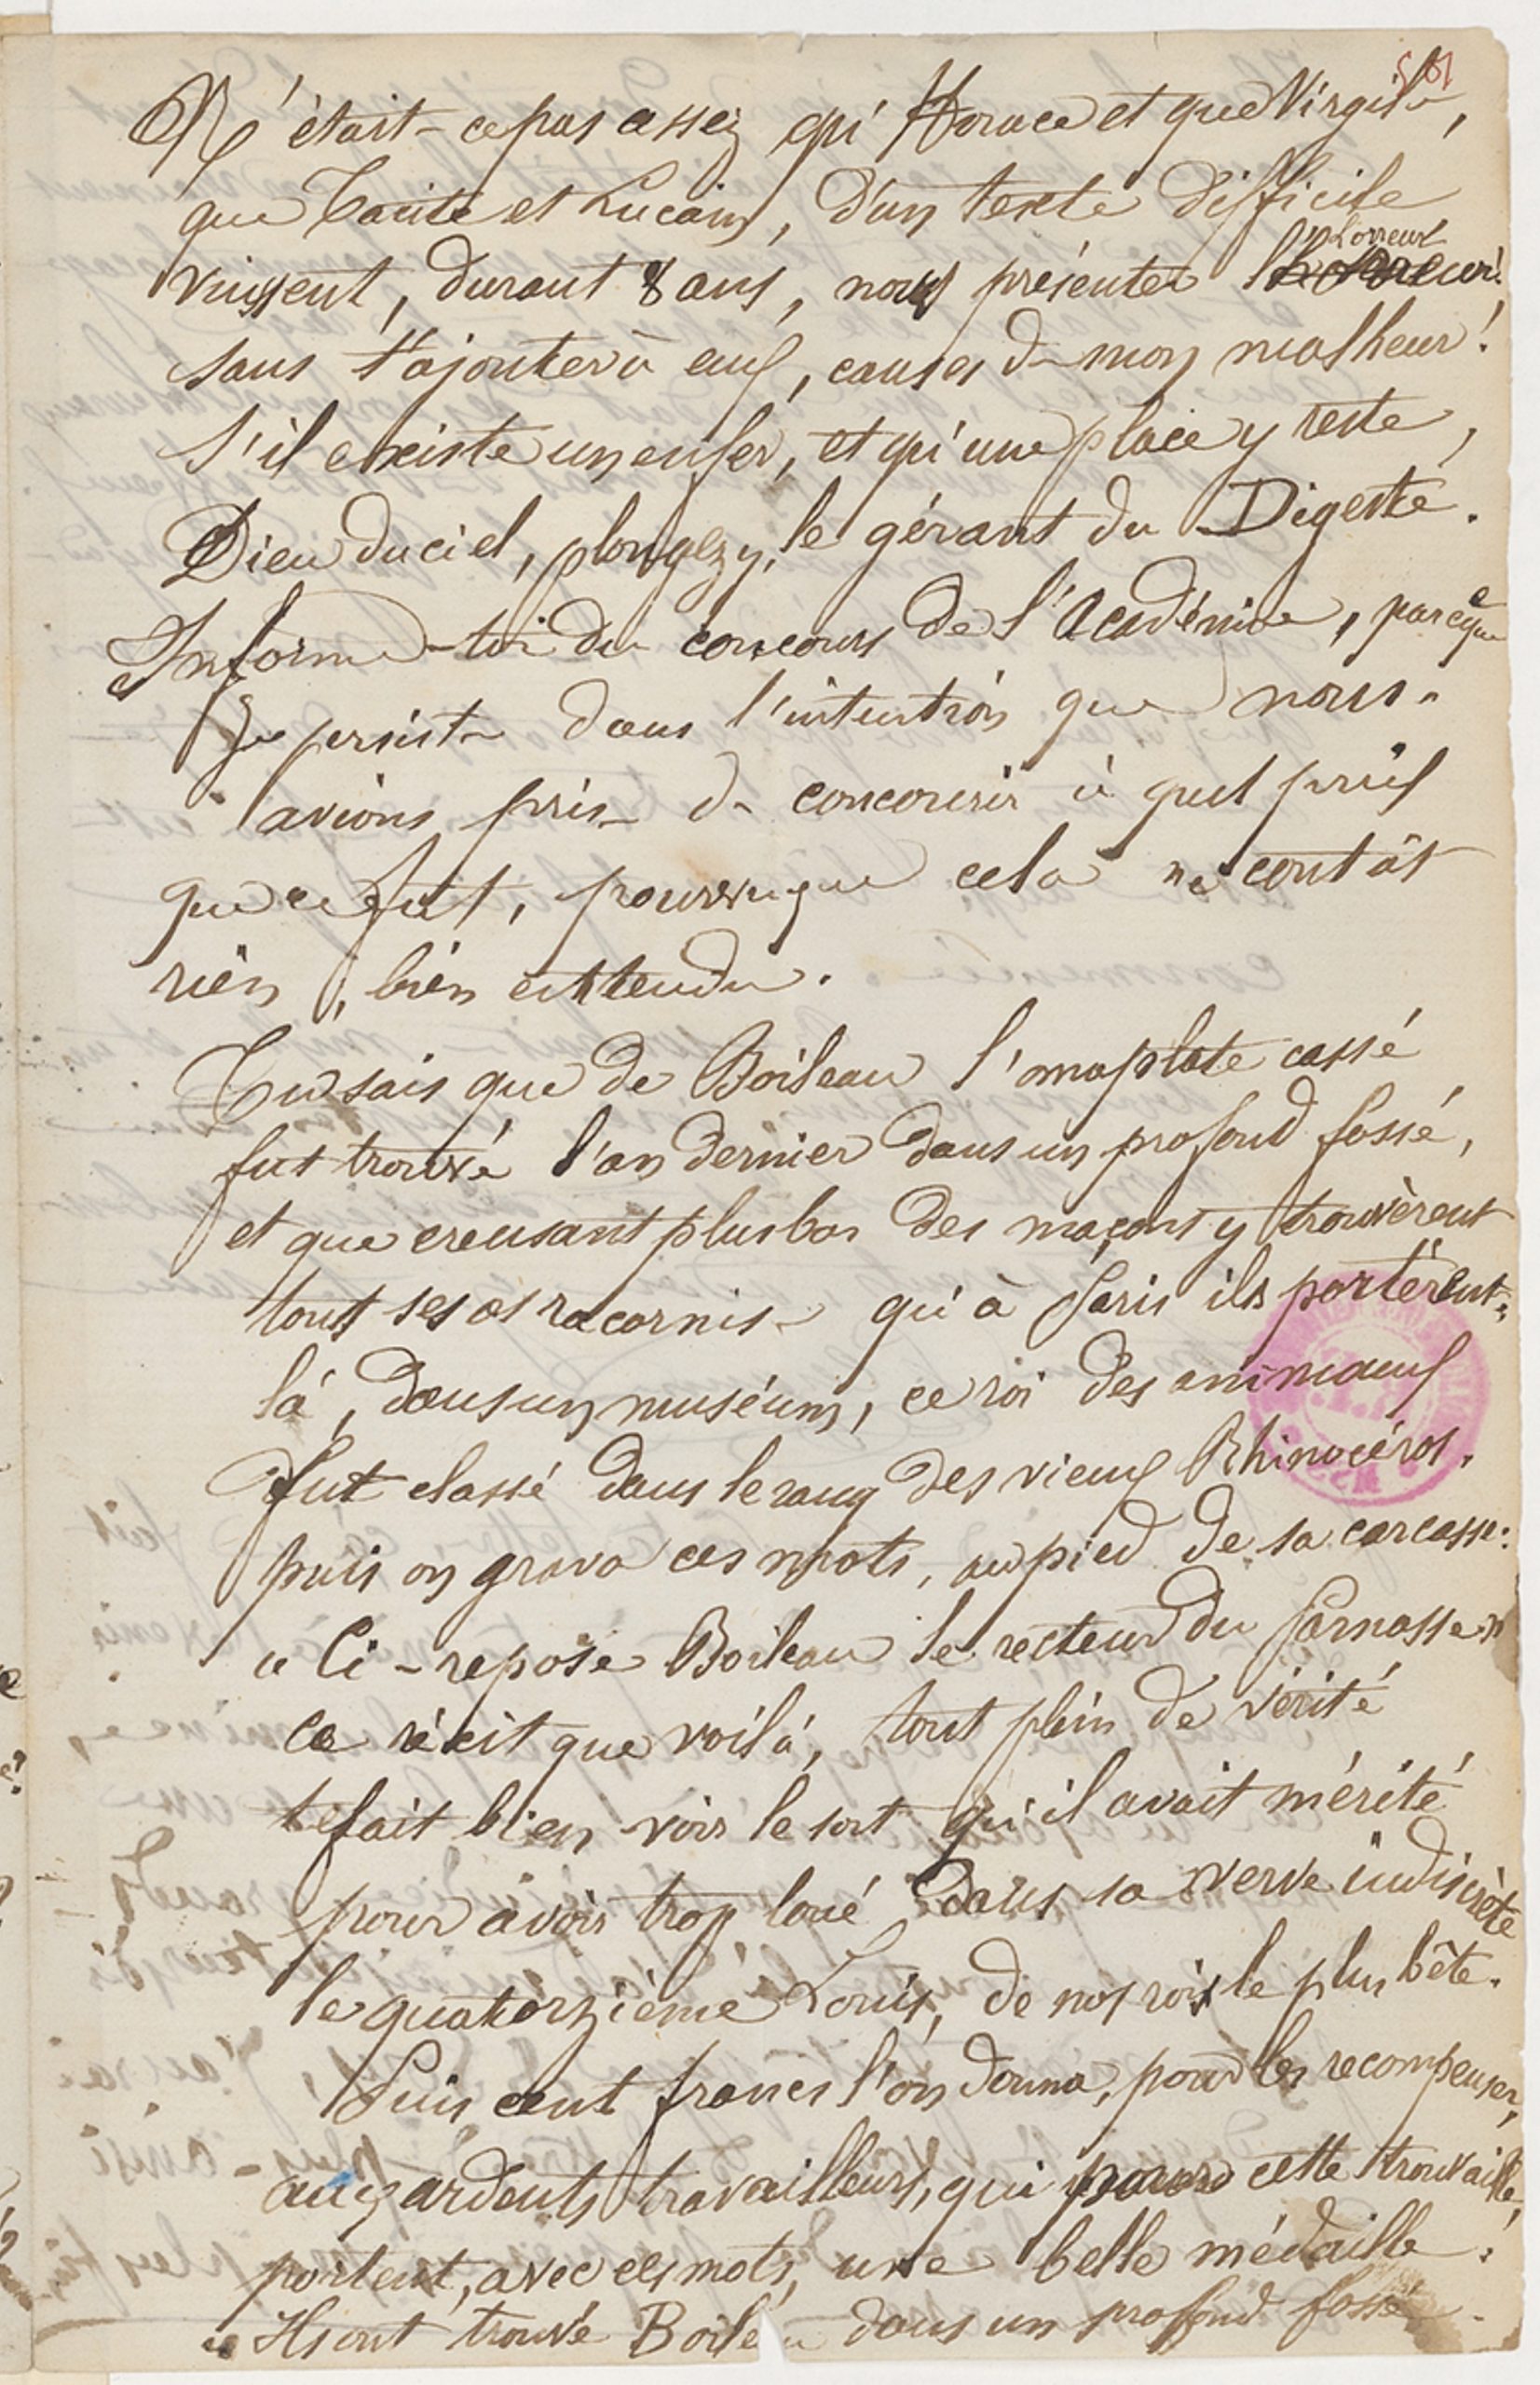 N'était-ce pas assez qu'Horace et que Virgile,
que Tacite et Lucain, d'un texte difficile
vinssent, durant 8 ans, nous présenter l'horreur
sans t'ajouter à eux, causes de mon malheur!
S'il existe un enfer, et qu'une place y reste,
Dieu du ciel, plongez y, le gérant du Digeste.
Informe-toi du concours de l'Académie, parceque
Je persiste dans l'intention que nous
avions prise de concourir à quel prix
que ce fut, pourvu que cela ne coutât
rien, bien entendu.
Tu sais que de Boileau l'omoplate cassé
fut trouvé l'an dernier dans un profond fossé,
et que creusant plus bas des maçons y trouvèrent
tout ses os racornis qu'à Paris ils portèrent.
là, dans un muséum, ce roi des animaux
fut classé dans le rang des vieux Rhinocéros.
puis on grava ces mots, au pied de sa carcasse:
« Ci-repose Boileau le recteur du Parnasse »
Ce récit que voilà, tout plein de vérité
te fait bien voir le sort qu'il avait mérité
pour avoir trop loué dans sa verve indiscrète
le quatorzième Louis, de nos rois le plus bête.
Puis cent francs l'on donna, pour les recompenser,
aux ardents travailleurs, qui pour cette trouvaille,
portent, avec ces mots, une belle médaille:
« Ils ont trouvé Boileau dans un profond fossé